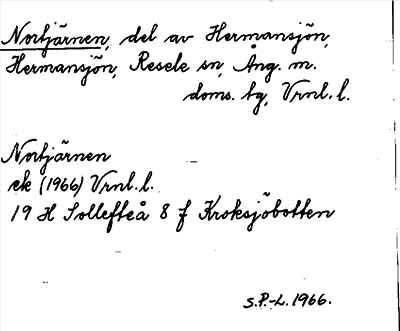 Nortjärnen, del av Hermansjön,
Hermansjön, Resele sn, Ång. m.
doms. tg, Vrnl. l.
Nortjärnen
ek (1966) Vrnl. l.
19 H Sollefteå 8 f Kroksjöbotten
S.P.-L. 1966.